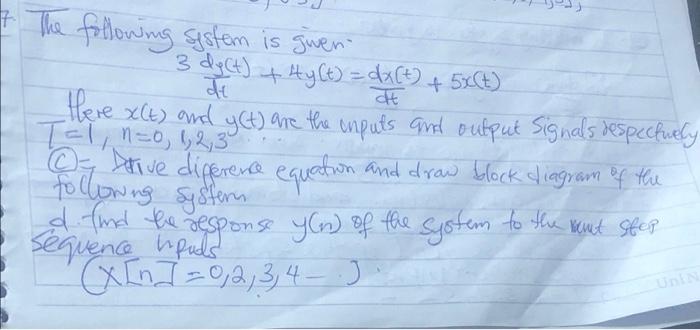 7. The following system is given.
3 dy(t)/dt + 4y(t) = dx(t)/dt + 5x(t)
Here x(t) and y(t) are the inputs and output signals respectively
T=1, n=0, 1, 2, 3 ...
(c)= Derive diference equation and draw block diagram of the
following system
d. find the response y(n) of the system to the step
sequence inputs
(x[n] = 0, 2, 3, 4 - - )